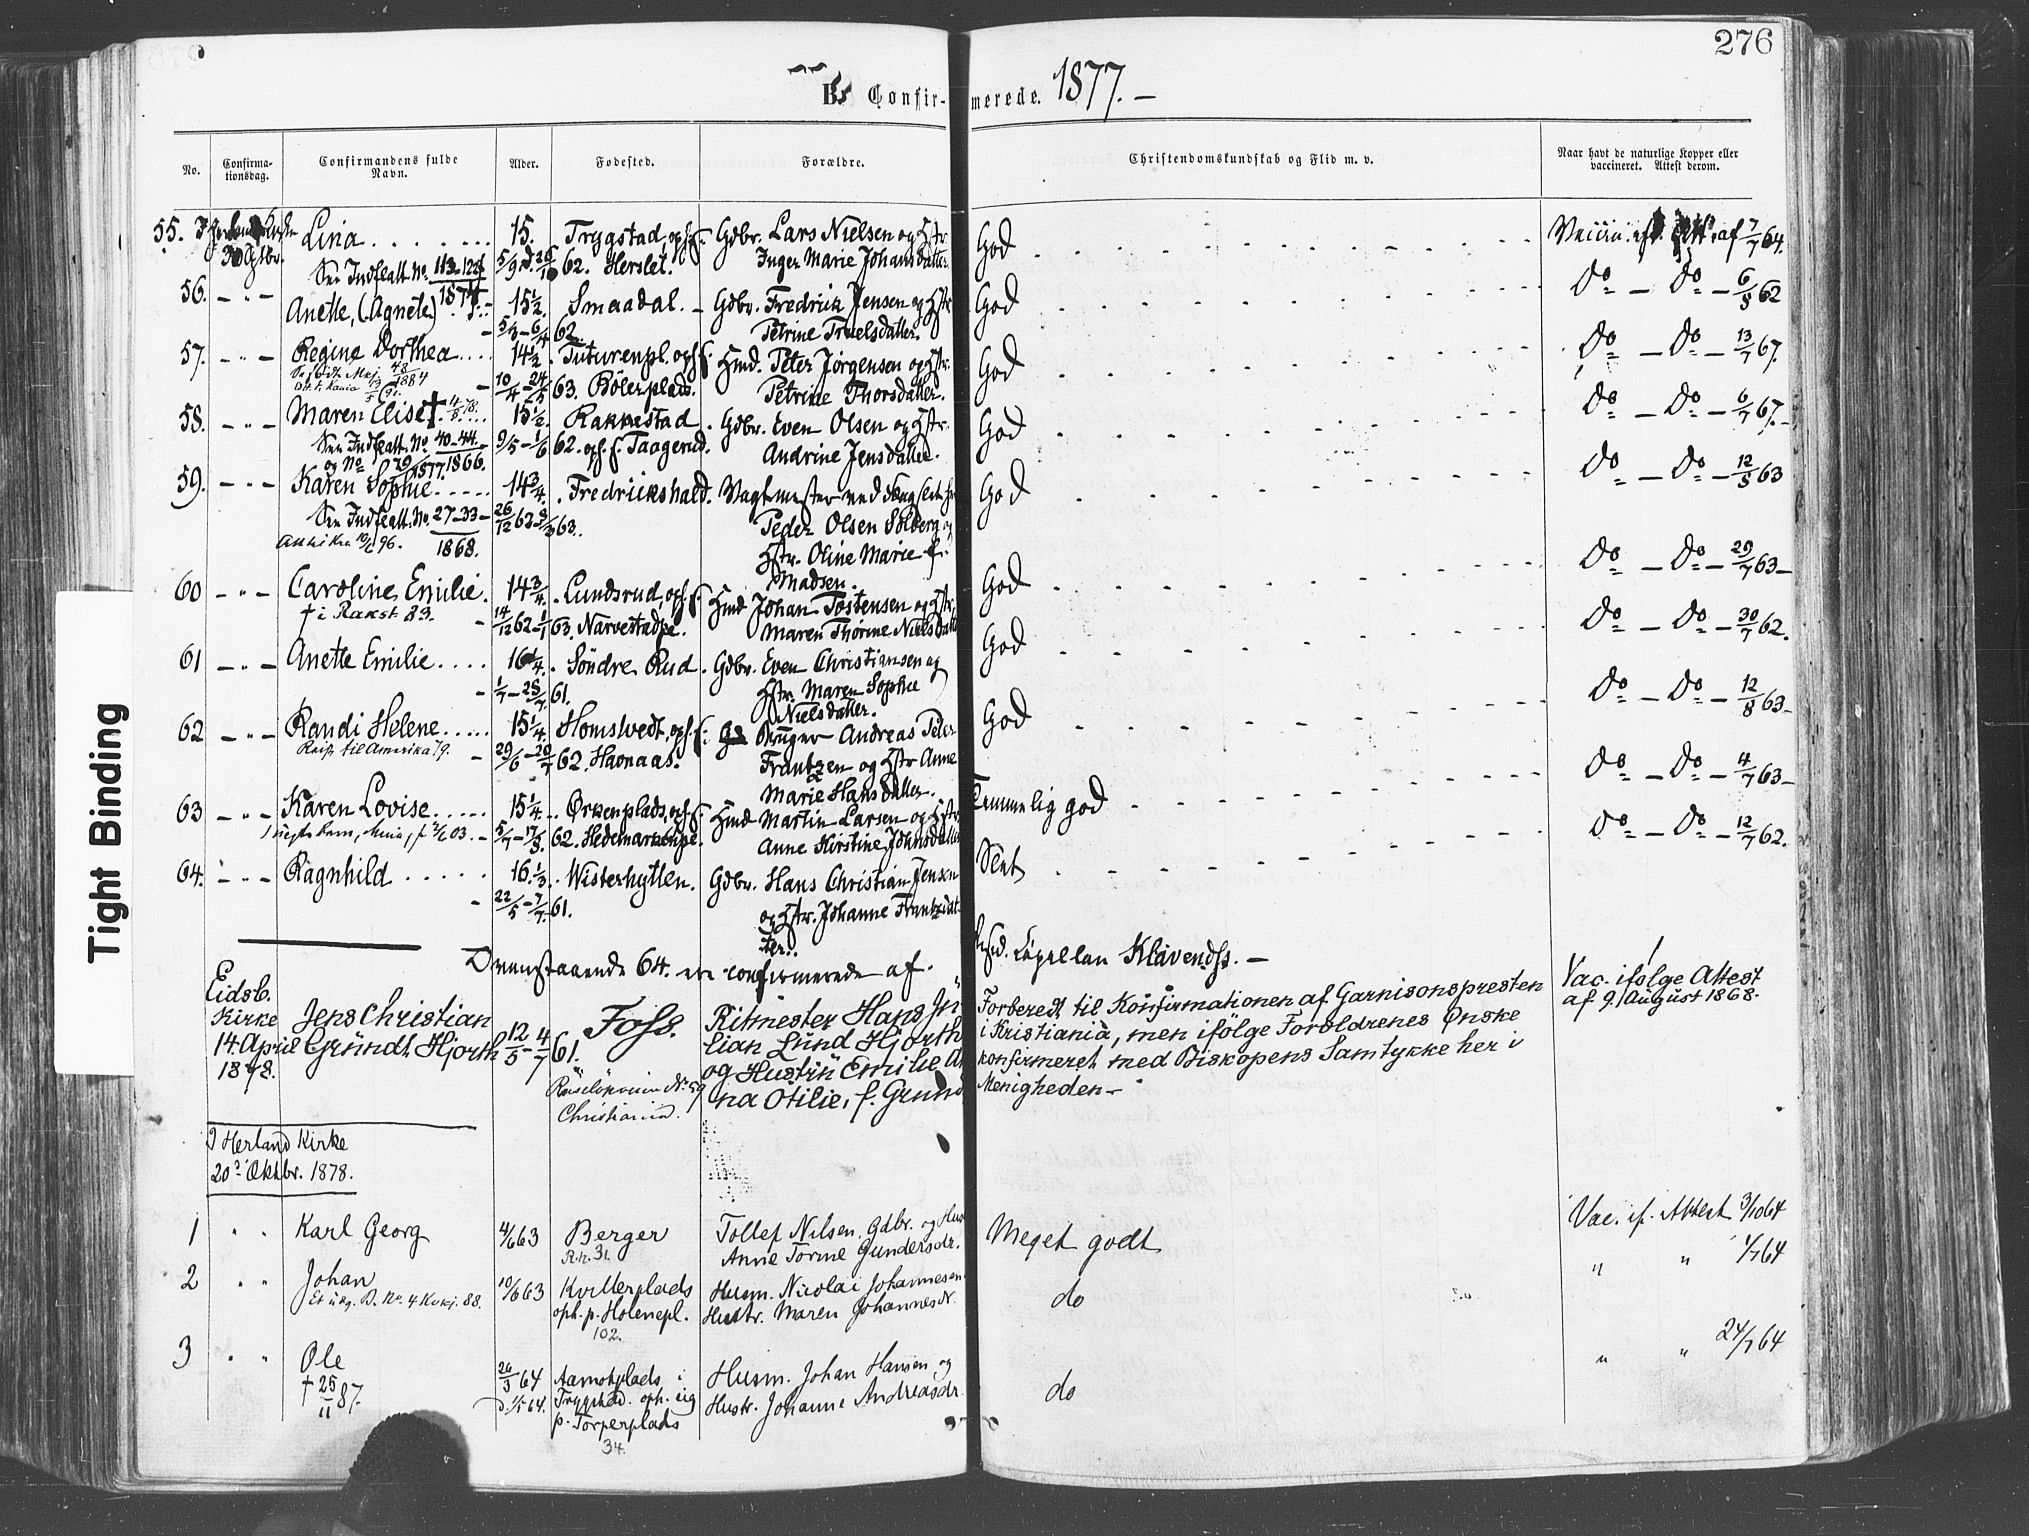 276
B. Confirmerede. 1877. –
No.
Confirmationsdag.
Confirmandens fulde Navn.
Alder.
Fødested.
Forældre.
Christendomskundskab og Flid m. v.
Naar havt de naturlige Kopper eller vaccineret. Attest derom.
55. Lina 15. Trygstad, oph. f. Gdbr. Lars Nielsen og Hstr. God
30 Septbr. Se Indflatt. No. 113-123 62. Herslet. Inger Marie Johansdatter 7/7 64.
1874
56. Anette, (Agnete) 15½ Smaadal. Gdbr. Fredrick Jensen og Hstr God Do – Do – 6/8 62
62 Petrine Truelsdatter.
57. Regine Dorthea 14½ Tuturenpl. oph. f. Hmd. Peter Jørgensen og Hstr. God Do – Do – 13/7 67.
10/4 – 24/5 63. Bölerplads. Petrine Thorsdatter.
58. Maren Elise † 4/8 78. 15½ Rakkestad Gdbr. Even Olsen og Hstr. God Do – Do – 6/7 67.
Se Indflatt. No. 40-44. 9/5 – 1/6 62. oph. f. Taagerud. Andrine Jensdatter.
og No. 1866.
1877.
59. Karen Sophie 14¾ Fredrickshald. Vagtmester ved God Do – Do – 12/8 63
Se Indflatt. No. 27-33 26/12 62 63. Peder Olsen Solberg og
1868. Hstr. Oline Marie f.
Madsen.
60 Caroline Emilie. 14¾ Lundsrud, oph. f. Hmd Johan Tostensen og Hstr. God Do – Do – 29/7 63 –
† i Rakst. 83. 14/12 62 – 1/1 63. Narvestadpl. Maren Thorine Nielsdatter
61 Anette Emilie 16¼ Söndre Rud Gdbr. Even Christiansen og God Do – Do – 30/7 62.
1/7 – 28/7 61. Hstr. Maren Sophie
Nielsdatter.
62 Randi Helene 15¼ Homstvedt, oph. f. Bruger Andreas Peter God Do – Do – 12/8 63 –
Reist til Amerika 79. 29/6 – 20/7 62. Havnaas. Frantzen og Hstr Anne
Marie Hansdatter.
63 Karen Lovise 15¼ Ørkenplads, oph. f. Hmd Martin Larsen og Hstr. Temmelig god Do – Do – 4/7 63 –
5/7 – 17/8 62. Hedemarkenpl. Anne Kirstine Johansdatter
64. Ragnhild 16⅓ Wisterhytten. Gdbr. Hans Christian Jensen Slet Do – Do – 12/7 62.
22/5 – 7/7 61. og Hstr. Johanne Frantzdatter.
Ovenstaaende 64. ere confirmerede af. Capellan Klavends. –
Eidsb. Kirke 14. April 1878.
Jens Christian Gründt Hjorth 12/5 – 4/7 61. Foss. Ritmester Hans Julian Lund Hjorth og Hustru Emilie Anna Otilie, f. Grund
Christiania.
Forberedt til Konfirmationen af Garnisonspresten
i Kristiania, men ifölge Forældrenes Ønske
konfirmeret med Biskopens Samtykke her i
Menigheden –
Vac. ifölge Attest
af 9/ August 1868.
I Herland Kirke
20de Oktbr. 1878.
1 " " Karl Georg 4/6 63 Berger Tollef Nilsen, Gdbr. og Hus Meget godt Vac. if. Attest 3/10 64
R.h. 31. Anne Torine Gundersdr.
2 " " Johan 10/6 63 Kvitterplads Husm. Nicolai Johannesen do " " 1/7 64
oph. p. Holenepl. Hustr. Maren Johannesdr.
102.
3 " " Ole 26/3 64 Aamotplads i Husm. Johan Hansen og do " " 24/7 64
† 25/11 87. Trygstad. oph. sig Hustr. Johanne Andreasdr.
p. Torperplads
34.
Tight Binding